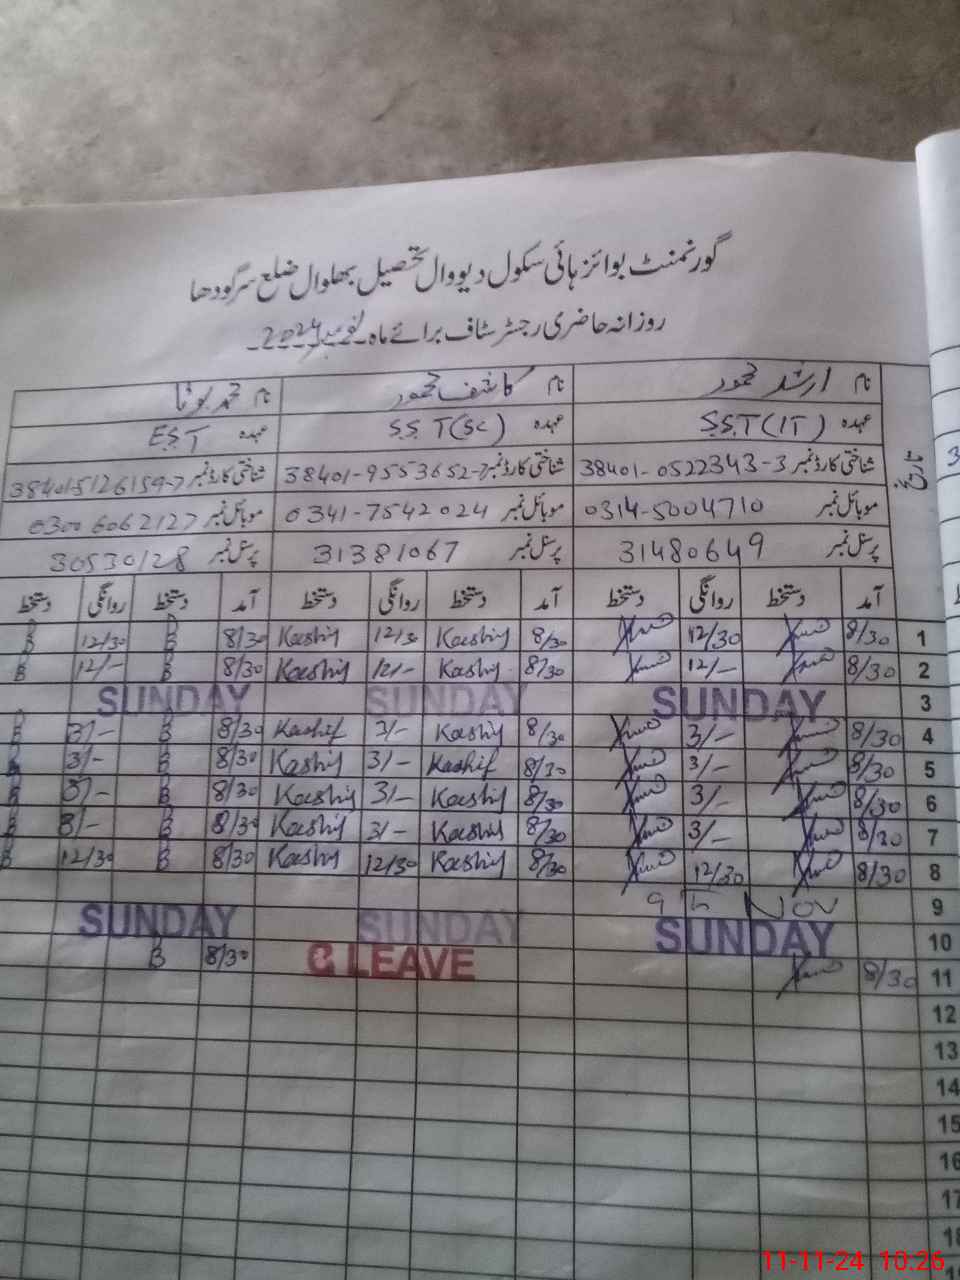 گورنمنٹ بوائز ہائی سکول دیووال تحصیل بھلوال ضلع سرگودھا
روزانہ حاضری رجسٹر سٹاف برائے ماہ نومبر 2024
تاریخ نام ارشد محمود نام کاشف محمود نام محمد بوٹا
عہدہ S.S.T(IT) عہدہ S.S.T(SC) عہدہ EST
شناختی کارڈ نمبر 38401-0522343-3 شناختی کارڈ نمبر 38401-9553652-7 شناختی کارڈ نمبر 384015126159-7
موبائل نمبر 0314-5004710 موبائل نمبر 0341-7542024 موبائل نمبر 03006062127
پرسنل نمبر 31480649 پرسنل نمبر 31381067 پرسنل نمبر 30530128
آمد دستخط روانگی دستخط آمد دستخط روانگی دستخط آمد دستخط روانگی دستخط
1 8/30 12/30 8/30 Kashif 12/30 Kashif 8/30 B 12/30 B
2 8/30 12/- 8/30 Kashif 12/- Kashif 8/30 B 12/- B
3 SUNDAY SUNDAY SUNDAY
4 8/30 3/- 8/30 Kashif 3/- Kashif 8/30 B 3/- B
5 8/30 3/- 8/30 Kashif 3/- Kashif 8/30 B 3/-
6 8/30 3/- 8/30 Kashif 3/- Kashif 8/30 B 3/- B
7 8/30 3/- 8/30 Kashif 3/- Kashif 8/30 B 3/- B
8 8/30 12/30 8/30 Kashif 12/30 Kashif 8/30 B 12/30 B
9 9th NOV
10 SUNDAY SUNDAY SUNDAY
11 8/30 C LEAVE 8/30 B
12
13
14
15
16
17
18
11-11-24 10:26